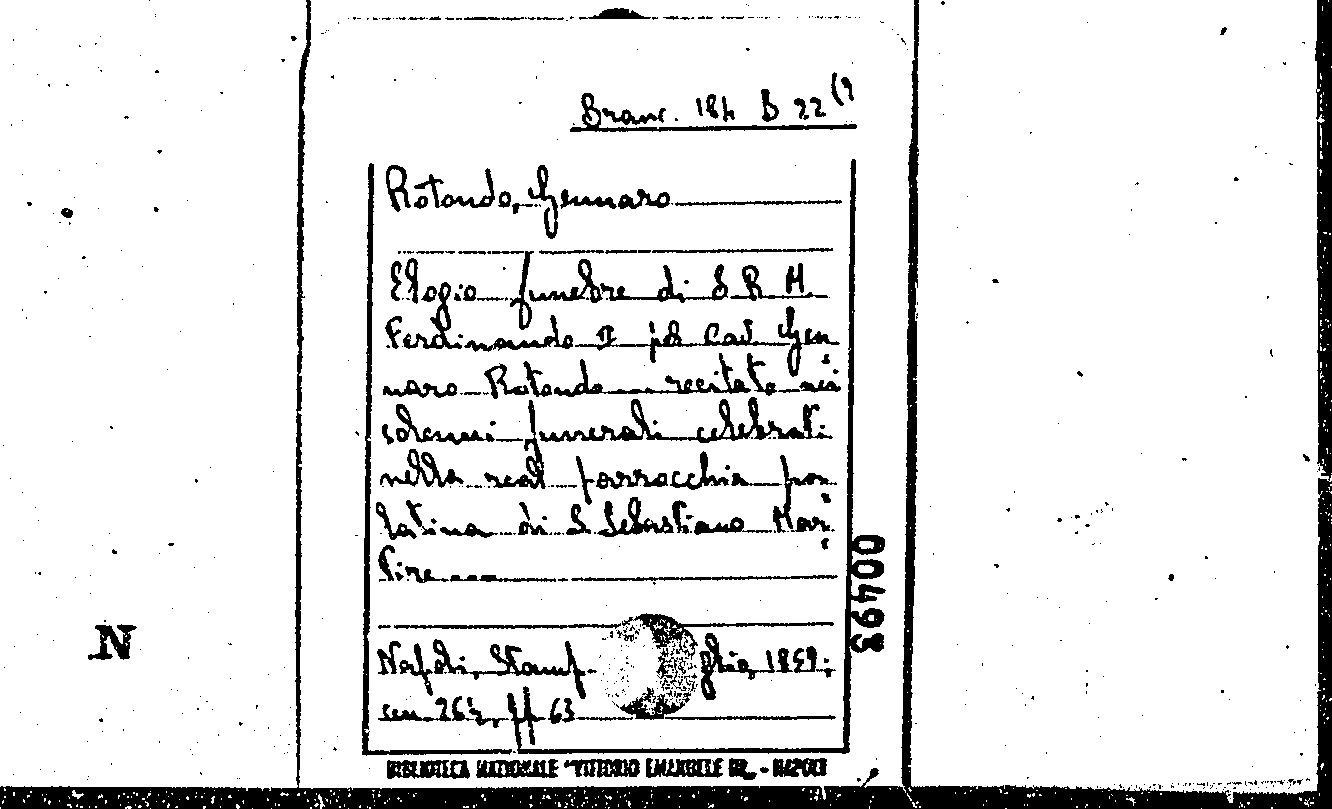 Branc. 184 B 22 (9
Rotondo, Gennaro
Elogio funebre di S. R. M.
Ferdinando II pel Cav. Gen
naro Rotondo recitato nei
solenni funerali celebrati
nella real parrocchia pa
latina di S. Sebastiano Mar
tire
Napoli, Stamp. 1859;
cm. 26½, pp 63
BIBLIOTECA NAZIONALE "VITTORIO EMANUELE III„ - NAPOLI
004993
N